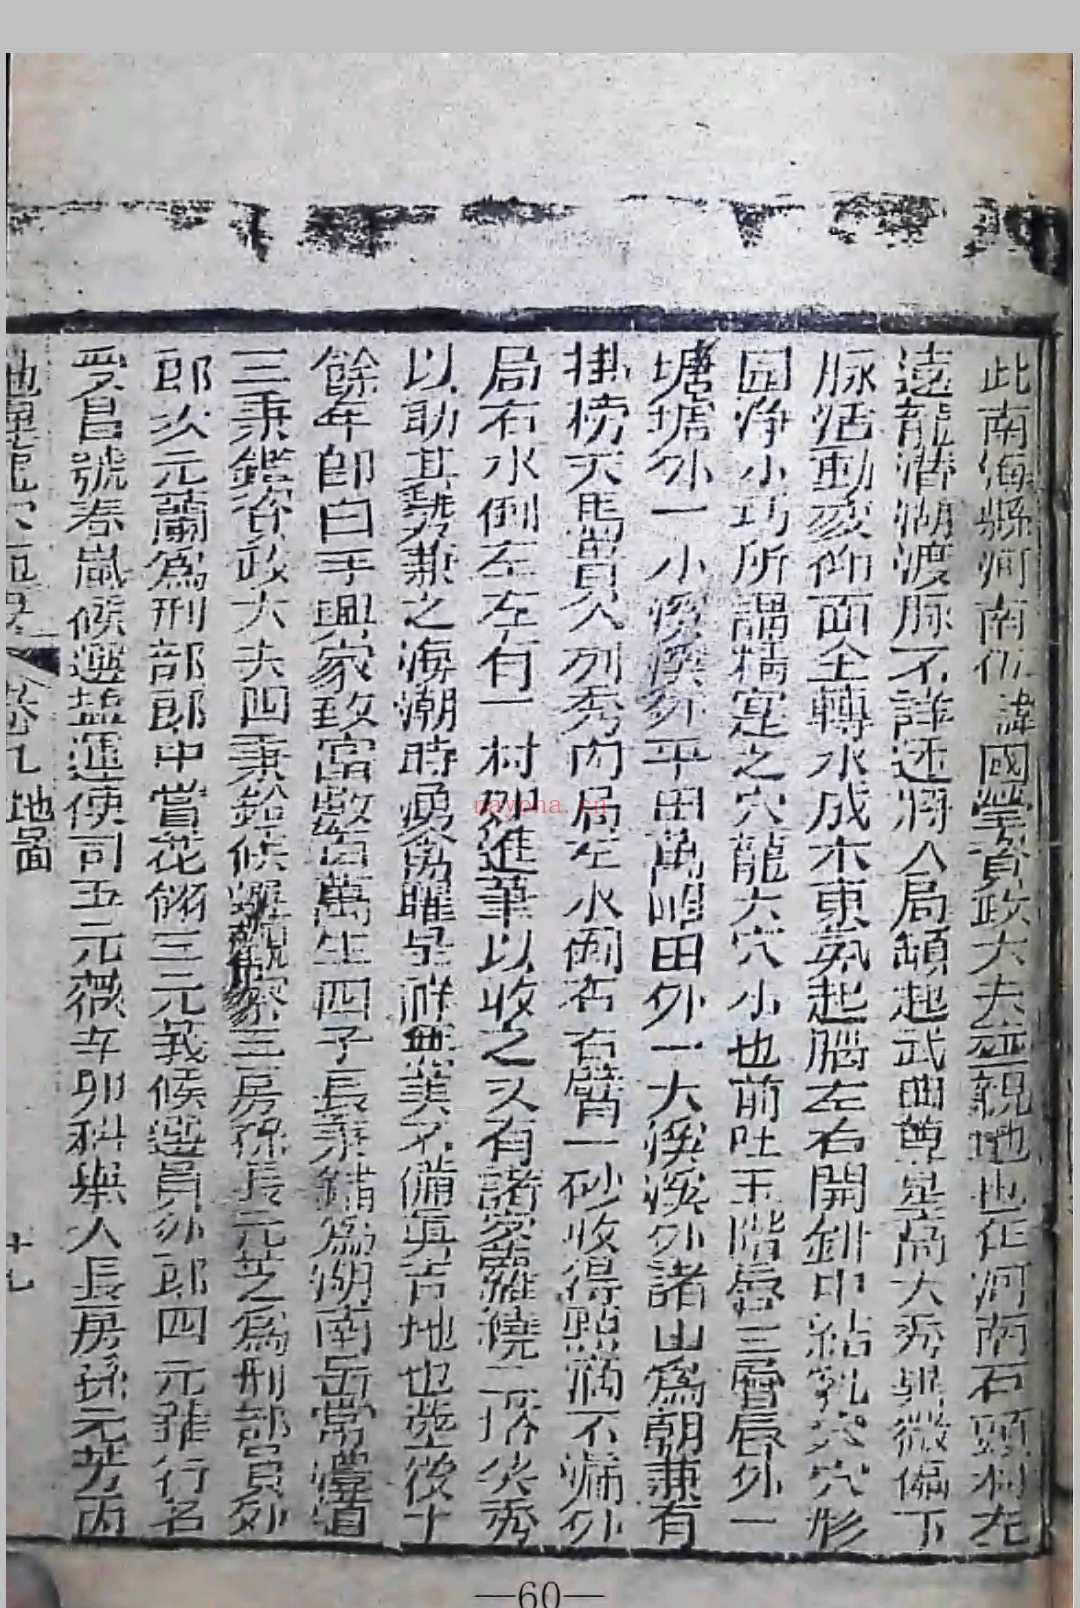 此南海縣河南伍諱國瑩資政大夫並親地也在河南石頭村左
遠龍潛湖渡脉不詳述將入局頓起武曲尊星高大秀麗微偏下
脉活動俯仰面全轉水成木東氣起腦左右開鉗中結乳穴穴形
圓淨小巧所謂精寔之穴龍大穴小也前吐玉階層三層唇外一
塘塘外一小溪溪外平田萬畝田外一大溪溪外諸山為朝兼有
掛榜天馬貴人列秀內局左水倒右右臂一砂收得點滴不漏外
局右水倒左左有一村兜進筆以收之又有諸家羅繞二塔尖秀
以助其勢兼之海潮時湧為曜星祥無美不備真吉地也塟後十
餘年即白手興家致富數百萬生四子長秉鏞為湖南岳常澧道
三秉鑑資政大夫四秉鈞候三房孫長元芝為刑部員外
郎次元蘭為刑部郎中賞花翎三元莪候選員外郎四元雖行名
受昌號春嵐候選塩運使司五元薇辛卯科舉人長房孫元芳丙
卷九地圖
十九
—60—
nayona.cn